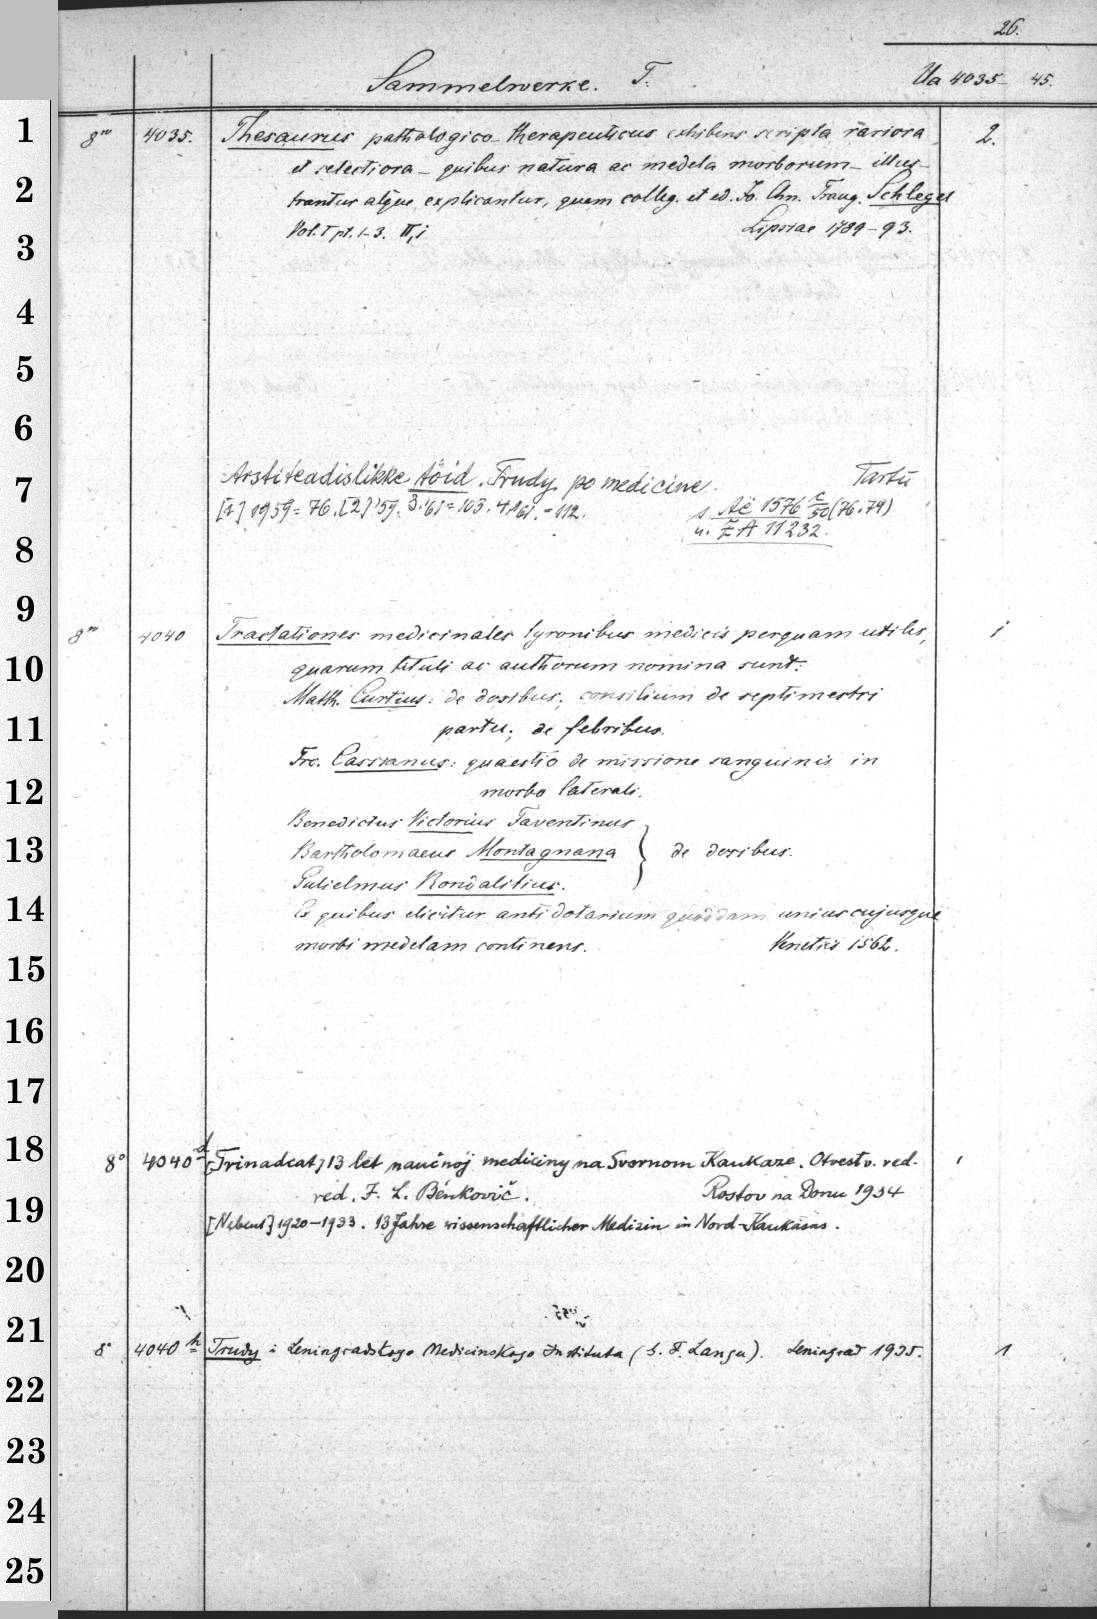 26.
Sammelwerke. T. Ua 4035- 45.
1 8vo 4035. Thesaurus pathologico-therapeuticus exhibens scripta rariora 2.
2 et selectiora - quibus natura ac medela morborum - illus-
trantur atque explicantur, quem colleg. et ed. Jo. Chn. Traug. Schlegel
3 Vol. I pt. 1-3. II,i Lipsiae 1789-93.
4
5
6
7 Arstiteadislikke töid. Trudy po medicine. Tartu
[1] 1959=76. [2] '59. 3.'61=103. 4.'61.=112. s. Ač 1576 c/50 (76.79)
8 u. ZA 11232.
9 8vo 4040 Tractationes medicinales tyronibus medicis perquam utiles, i
10 quarum tituli ac authorum nomina sunt:
Matth. Curtius: de dosibus; consilium de septimestri
11 partu; de febribus.
Frc. Cassianus: quaestio de missione sanguinis in
12 morbo laterali.
Benedictus Victorius Faventinus
13 Bartholomaeus Montagnana } de dosibus.
Gulielmus Rondalitius.
14 Ex quibus elicitur antidotarium quoddam uniuscujusque
morbi medelam continens. Venetiis 1562.
15
16
17
18 8° 4040 d [Trinadcat] 13 let naučnoj mediciny na Svernom Kaukaze. Otvestv. red.
red. F. L. Benkovič. Rostov na Donu 1934
19 [Nebent] 1920-1933. 13 Jahre wissenschaftlicher Medizin in Nord-Kaukasus.
20
21 8° 4040 h Trudy i Leningradskogo Medicinskogo Instituta (G. F. Langu). Leningrad 1935. 1
22
23
24
25